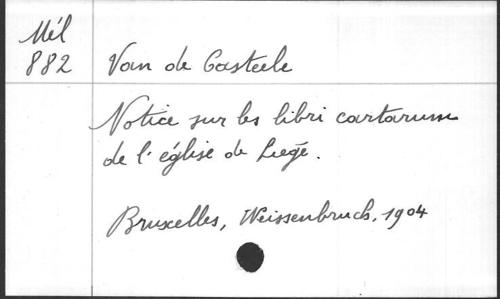 Mél
882 Van de Casteele
Notice sur les libri cartarum
de l'église de Liège.
Bruxelles, Weissenbruch, 1904